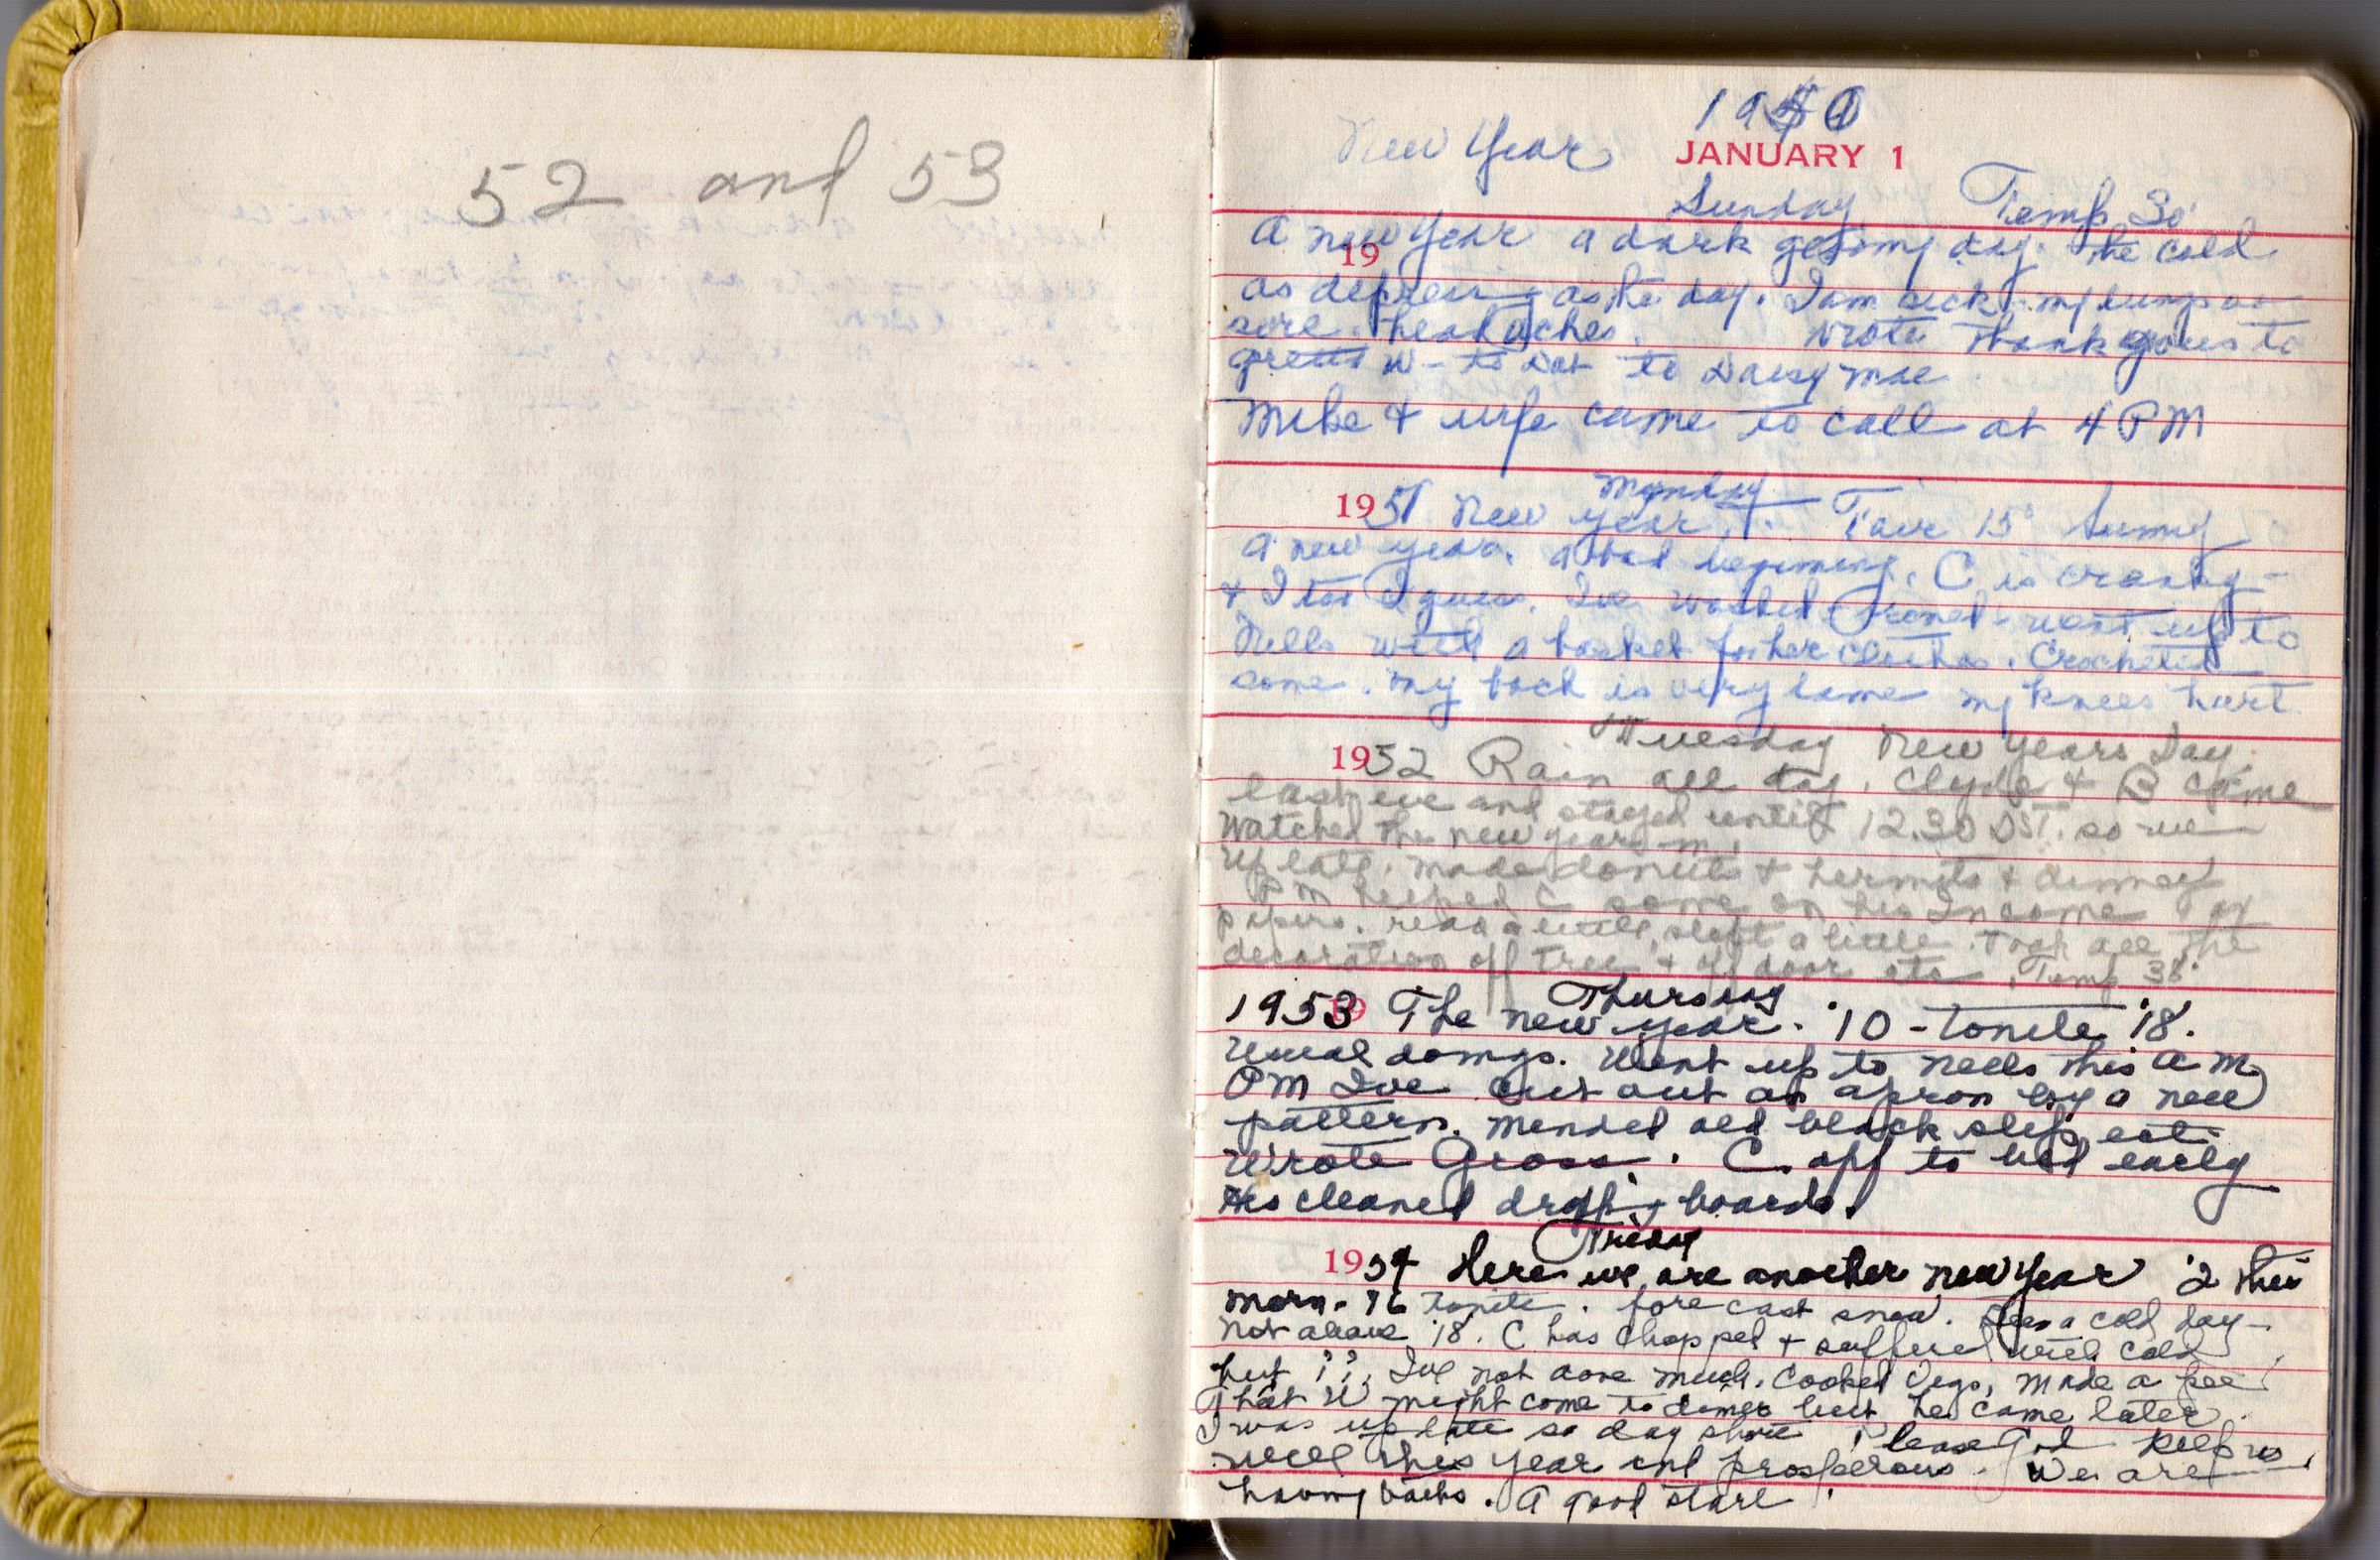 52 and 53
1950
New Year
JANUARY 1
Sunday Temp 30
A new Year a dark gloomy day. The cold
19
as depressing as the day. I am sick, my lungs are
sore. head aches. Wrote thank yous to
W - to Dot to Daisy Mae
Mike & wife came to call at 4 PM
Monday
1951 New year. 15° Sunny
A new year. a bad beginning. C is cranky -
& I too I guess. Ive washed - ironed - went up to
Nells with a basket for her clothes. Crocheted
some. my back is very lame my knees hurt
Tuesday New Years Day.
1952 Rain all day. Clyde & B came
last eve and stayed until 12.30 DST. so we
watched the new year in.
up late. made donuts & hermits & dinner
PM helped C some on his Income Tax
papers. read a little, slept a little. Took all the
decorations off tree & off door etc. Temp 38°
Thursday
1953 The new year. °10 - tonite °18.
19
usual doings. Went up to Nells this A M
PM Ive cut out an apron by a new
pattern. mended old black slip, etc.
Wrote Grace. C. off to bed early
Has cleaned drop boards.
Friday
1954 Here we are another new Year °2 this
morn. 16 tonite. forecast snow. Been a cold day -
not above °18. C has chopped & suffered with cold
but ??. Ive not done much. Cooked Vegs, made a pie
that W might come to dinner but he came later.
I was up late so day short. Please God keep us
well this year and prosperous. We are
having . A good start.